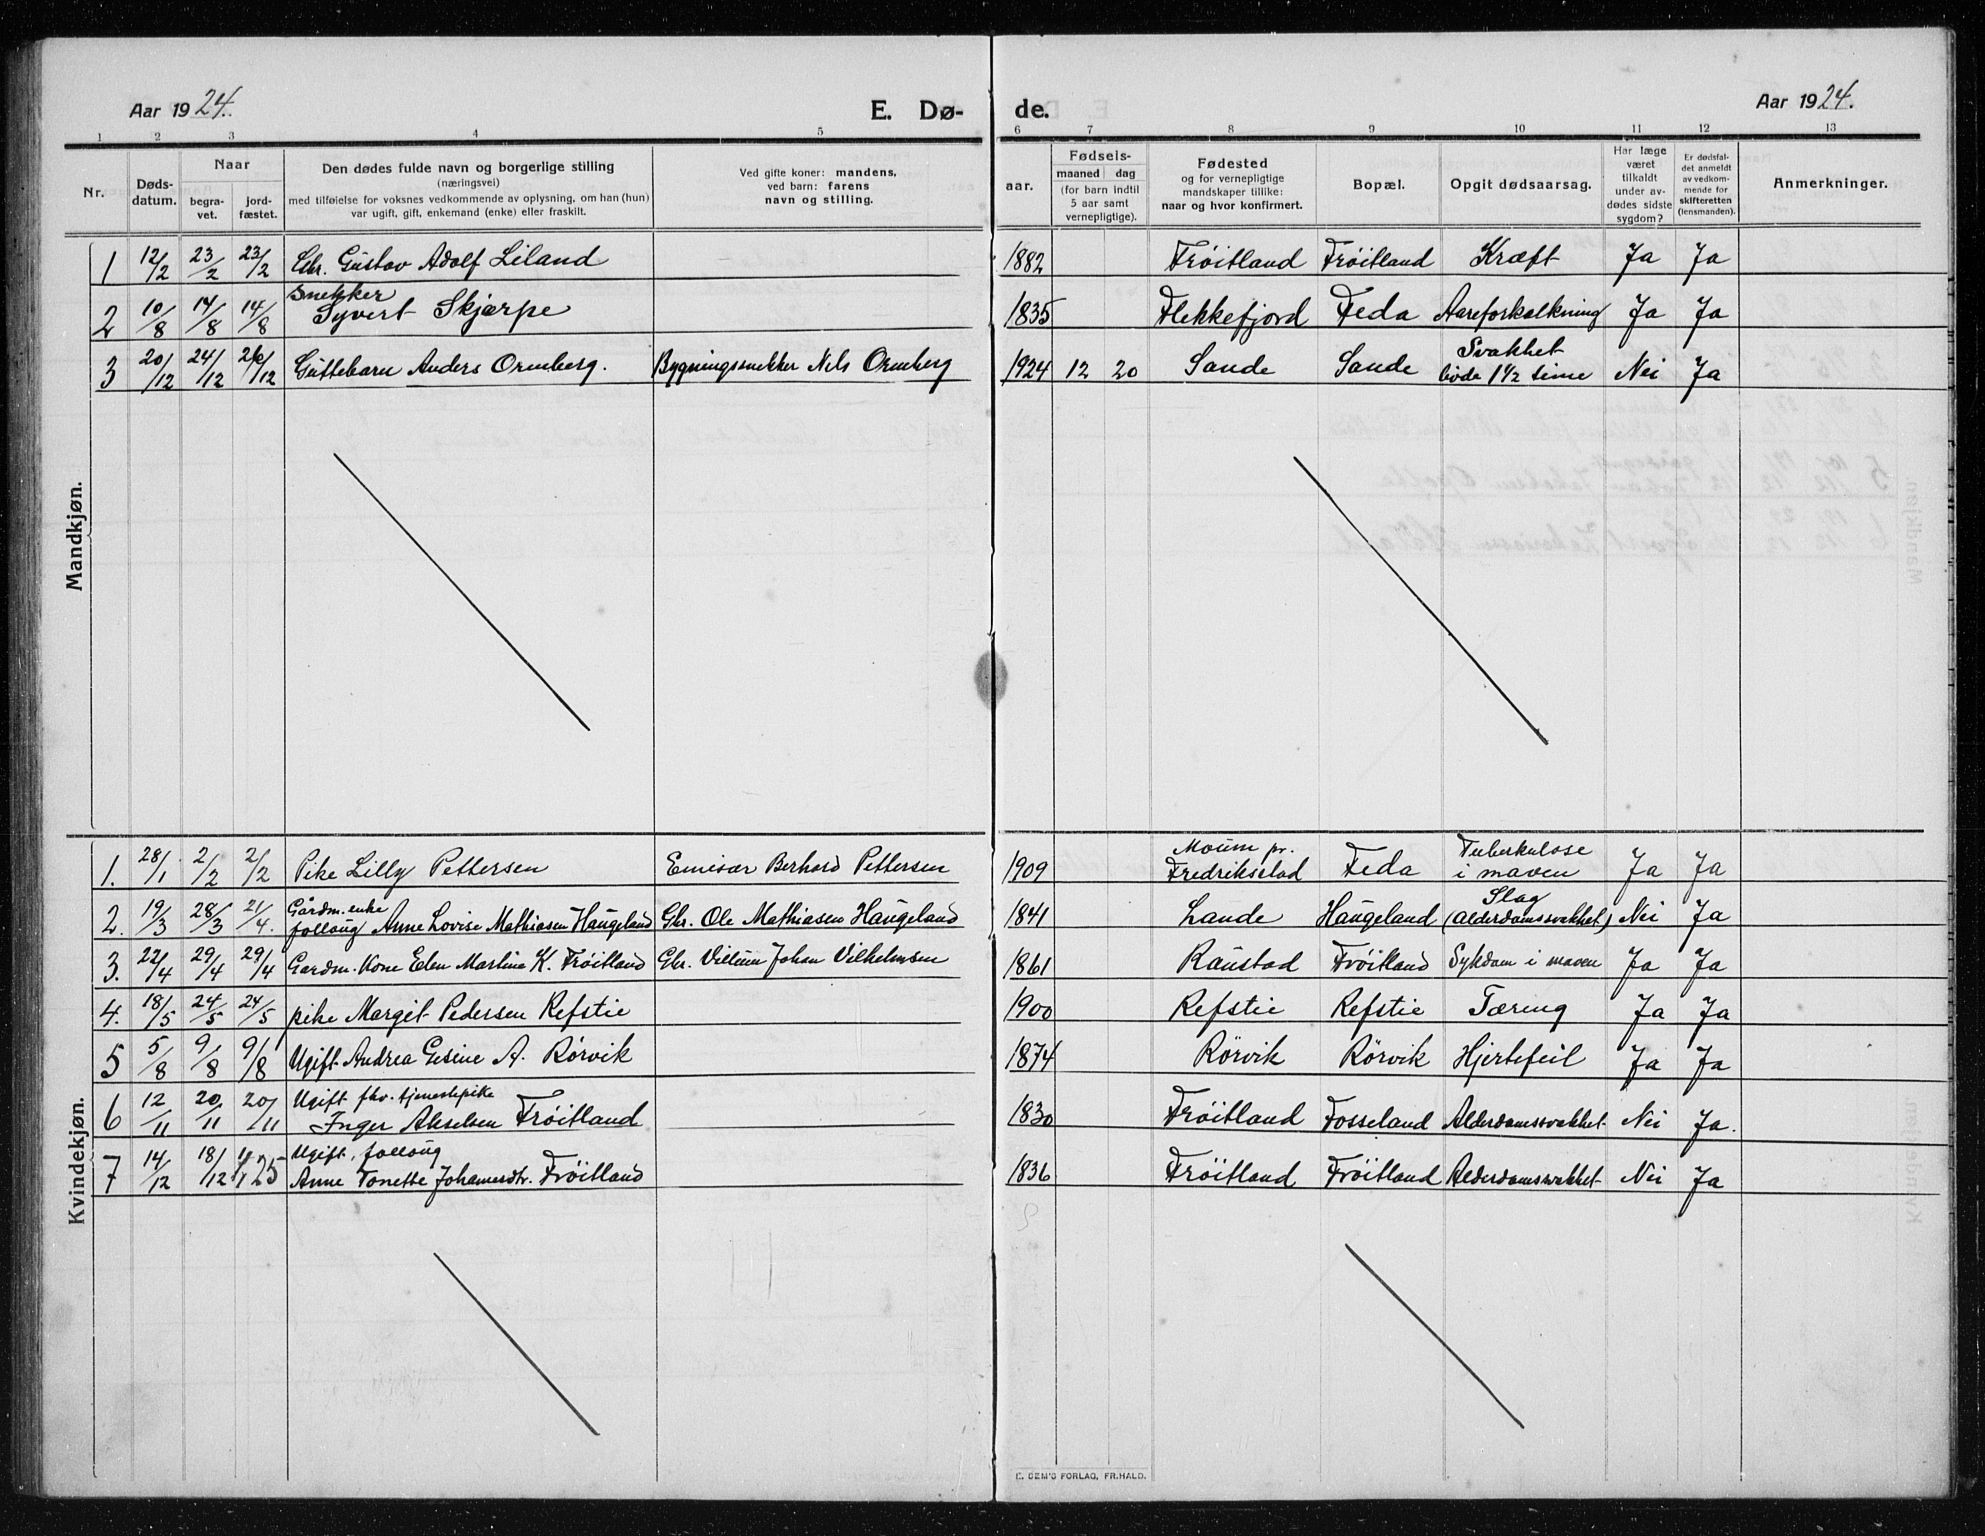 Aar 1924. E. Dø- de. Aar 1924.
1 2 3 4 5 6 7 8 9 10 11 12 13
Nr.
Døds-datum.
Naar
begra-vet.
jord-fæstet.
Den dødes fulde navn og borgerlige stilling
(næringsvei)
med tilføielse for voksnes vedkommende av oplysning, om han (hun)
var ugift, gift, enkemand (enke) eller fraskilt.
Ved gifte koner: mandens,
ved barn: farens
navn og stilling.
Fødsels-
aar.
maaned dag
(for barn indtil
5 aar samt
vernepligtige).
Fødested
og for vernepligtige
mandskaper tillike:
naar og hvor konfirmert.
Bopæl.
Opgit dødsaarsag.
Har læge
været
tilkaldt
under av-
dødes sidste
sygdom?
Er dødsfal-
det anmeldt
av vedkom-
mende for
skifteretten
(lensmanden).
Anmerkninger.
Mandkjøn.
1 12/2 23/2 23/2 Gbr. Gustav Adolf Liland 1882 Frøitland Frøitland Kræft Ja Ja
2 10/8 14/8 14/8 Snekker Syvert Skjærpe 1835 Flekkefjord Feda Aareforkalkning Ja Ja
3 20/12 24/12 26/12 Guttebarn Anders Ormberg. Bygningssnekker Nils Ormberg 1924 12 20 Sande Sande Svakhet
bøde 1½ time Nei Ja
Kvindekjøn.
1. 28/1 2/2 2/2 Pike Lilly Pettersen Emisær Berhard Pettersen 1909 Moum pr.
Fredriksstad Feda Tuberkulose
i maven Ja Ja
2. 19/3 28/3 21/4. Gårdm. enke
follaug Anne Lovise Mathiasen Haugeland Gbr. Ole Mathiasen Haugeland 1841 Lande Haugeland Slag
(Alderdomssvakhet) Nei Ja
3. 22/4 29/4 29/4 Gardm. Kone Elen Martine K. Frøitland Gbr. Villum Johan Vilhelmsen 1861 Raustad Frøitland Sykdom i maven Ja Ja
4. 18/5 24/5 24/5 pike Margit Pedersen Refstie 1900 Refstie Refstie Tæring Ja Ja
5 5/8 9/8 9/8 Ugift Andrea Gesine A. Rörvik 1874 Rörvik Rörvik Hjertefeil Ja Ja
6 12/11 20/11 20/11 Ugift fhv. tjenestepike
Inger Akselsen Frøitland 1830 Frøitland Fosseland Alderdomssvakhet Nei Ja.
7 14/12 18/12 1/1 25 Ugift, follaug
Anne Tonette Johannesdtr. Frøitland 1836 Frøitland Frøitland Alderdomssvakhet Nei Ja
E. SEM'S FORLAG, FR.HALD.